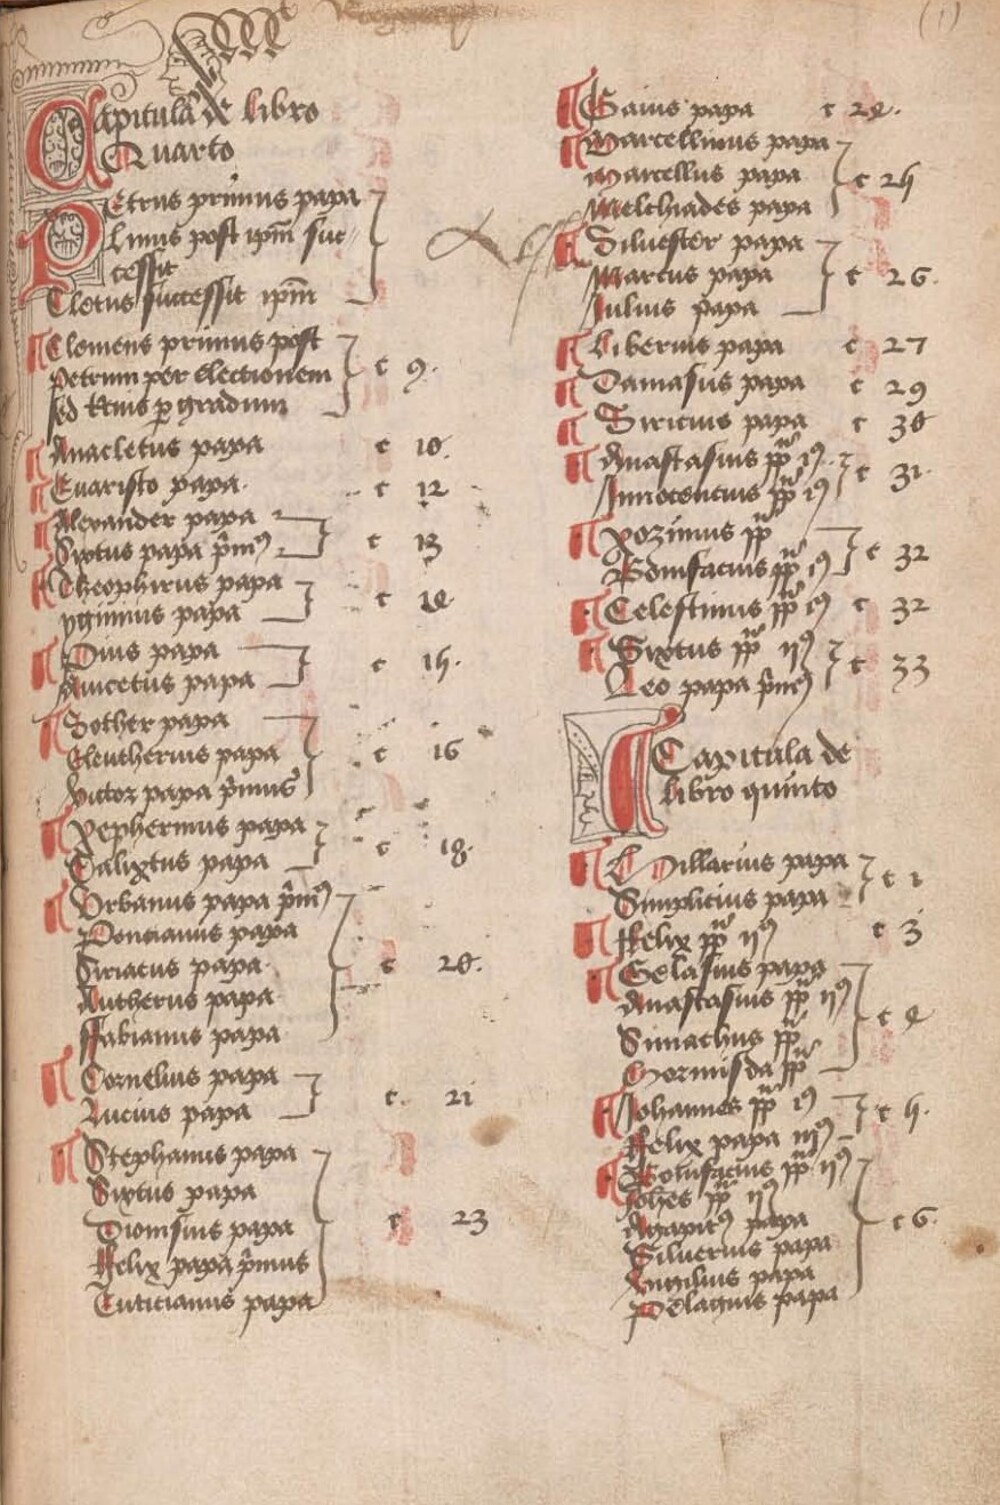 (1)
Capitula de libro
Quarto
PEtrus primus papa
Linus post ipm̄ suc-
cessit
Cletus successit ipm̄
Clemens primus post
petrum per electionem c 9.
sed tcius ꝑ gradum
Anacletus papa c 10.
Euaristo papa. c 12
Alexander papa
Sixtus papa p̄mꝰ c 13
Theophirus papa
yginius papa c 14
Pius papa
Anicetus papa c 15.
Sother papa
Eleutherius papa c 16
Victor papa p̄mus
Zepherinus papa
Calixtus papa c 18.
Vrbanus papa p̄mꝰ
Poncianus papa
Siriacus papa c 20.
Antherus papa
Ffabianus papa
Cornelius papa
Lucius papa c. 21
Stephanus papa
Sixtus papa
Dionisius papa c 23
Felix papa p̄mus
Euticianus papa
Gaius papa c 24.
Marcellinus papa
Marcellus papa c 25
Melchiades papa
Siluester papa
Marcus papa c 26.
Iulius papa
Liberius papa c 27
Damasus papa c 29
Siricius papa c 30
Anastasius pp̄ iꝰ. c 31.
Innocencius pp̄ iꝰ
Yozimus pp̄
Bonifacius pp̄ iꝰ c 32
Celestinus pp̄ iꝰ c 32
Sixtus pp̄ iiꝰ
Leo papa p̄mꝰ c 33
Capitula de
libro quinto
Hillarius papa
Simplicius papa c 1
Felix pp̄ iiꝰ c 3
Gelasius papa
Anastasius pp̄ iiꝰ
Simachus pp̄ c 4
Hormisda pp̄
Iohannes pp̄ iꝰ c 5.
Felix papa iiiꝰ
Bonifacius pp̄ iiꝰ
Iohēs pp̄ iiꝰ
Agapitꝰ papa c 6.
Siluerius papa
Virgilius papa
Pelagius papa